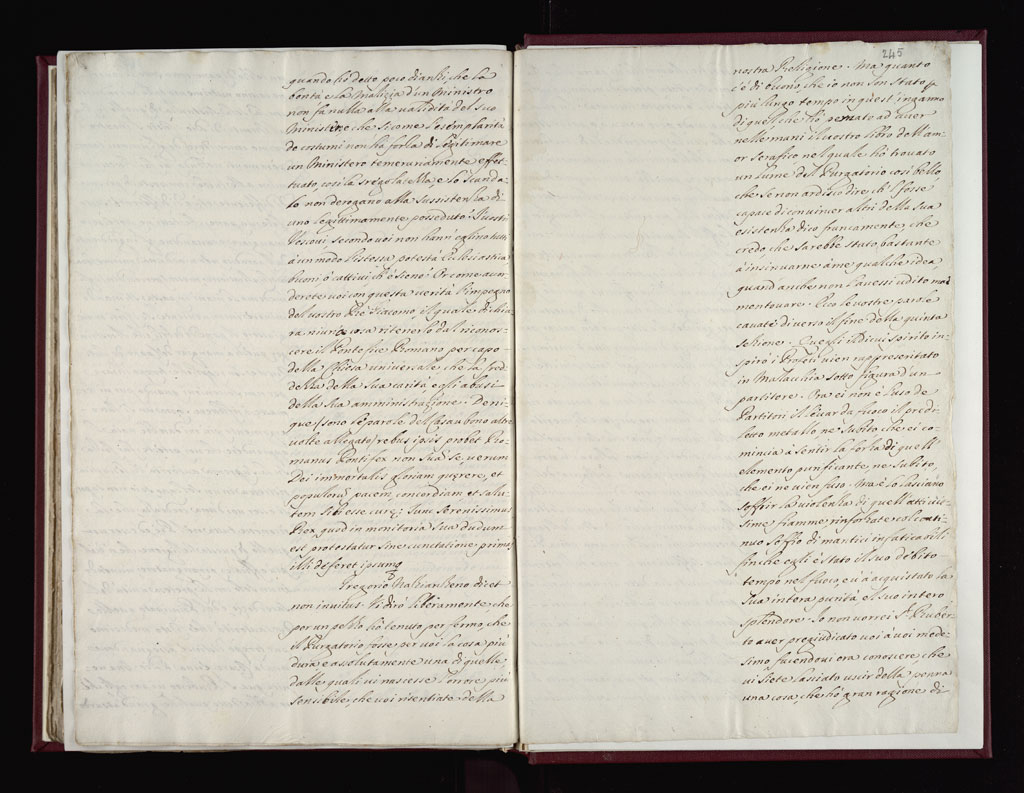 quando hò detto poco dianzi, che la
bontà e la malizia d'un Ministro
non fà nulla alla validità del suo
Ministero che sicome l'esemplarità
de costumi non hà forza di legitimare
un Ministero temerariamente effet-
tuato, così la sregolatezza, e lo scanda-
lo non derogano alla sussistenza di
uno legittimamente posseduto. I vostri
Vescovi, secondo voi non hann' eglino tutti
à un modo l'istessa potestà Ecclesiastica
buoni, ò cattivi ch' è sieno? Or come accor-
derete voi con questa verità l'impegno
del vostro Rè Giacomo, il quale dichia
ra niuna cosa ritenerlo dal ricono-
scere il Pontefice Romano per capo
della Chiesa universale che la fred-
dezza della sua carità, e gli abusi
della sua amministrazione. Deni-
que (sono le parole del Casaubono altre
volte allegate) rebus ipsis probet Ro-
manus Pontifex non sua se, verum
Dei immortalis gloriam quęrere, et
populorũ pacem, concordiam, et salu-
tem sibi esse curę; tunc Serenissimus
Rex, quod in monitoria sua dudum
est protestatus sine cunctatione primas
illi deferet ipsumq
Gregorio Nazianzeno dicet
non invitus. Vi dirò liberamente, che
per un pezzo hò tenuto per fermo, che
il Purgatorio fosse per voi la cosa più
dura e assolutamente una di quelle
dalle quali vi nascesse l'orrore più
sensibile, che voi risentiate della
245
nostra Religione. Ma quanto
c'è di buono, che io non son stato p
più lungo tempo in quest'inganno
di quello che hò penato ad aver
nelle mani il vostro libro dell'am-
or serafico nel quale hò trovato
un lume del Purgatorio così bello,
che se non ardisco dire ch'ei fosse
capace di convincer altri della sua
esistenza dico francamente, che
credo, che sarebbe stato bastante
à insinuarne à me qualche idea,
quand'anche non l'avessi udito mai
mentovare. Ecco le vostre parole
cavate di verso il fine della quinta
sezione. Quegli il di cui spirito in-
spirò i Profeti vien rappresentato
in Malacchia sotto figura d'un
partitore. Ora ei non è l'uso de
Partitori il levar da fuoco il predi-
letto metallo ne subito che ei co-
mincia a sentir la forza di quell'
elemento purificante, ne subito,
che ei ne vien fuso. Mà è lo lasciano
soffrir la violenza di quell'attivis-
sime fiamme rinforzate col conti-
nuo soffio di mantici infaticabili
finche egli è stato il suo debito
tempo nel fuoco, e v'à acquistato la
sua intera purità e il suo intero
splendore. Io non vorrei Sr. Ruber-
to aver pregiudicato voi à voi mede-
simo, facendovi ora conoscere, che
vi siete lasciato uscir della penna
una cosa, che hò gran ragione di-